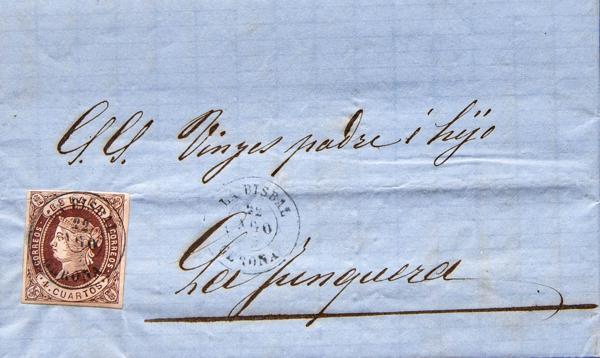 S.S. Vinyes padre i hijo
LA BISBAL
22
AGO
GERONA
La Junquera
CORREOS
CORREOS
22
AGO
GERONA
4 CUARTOS